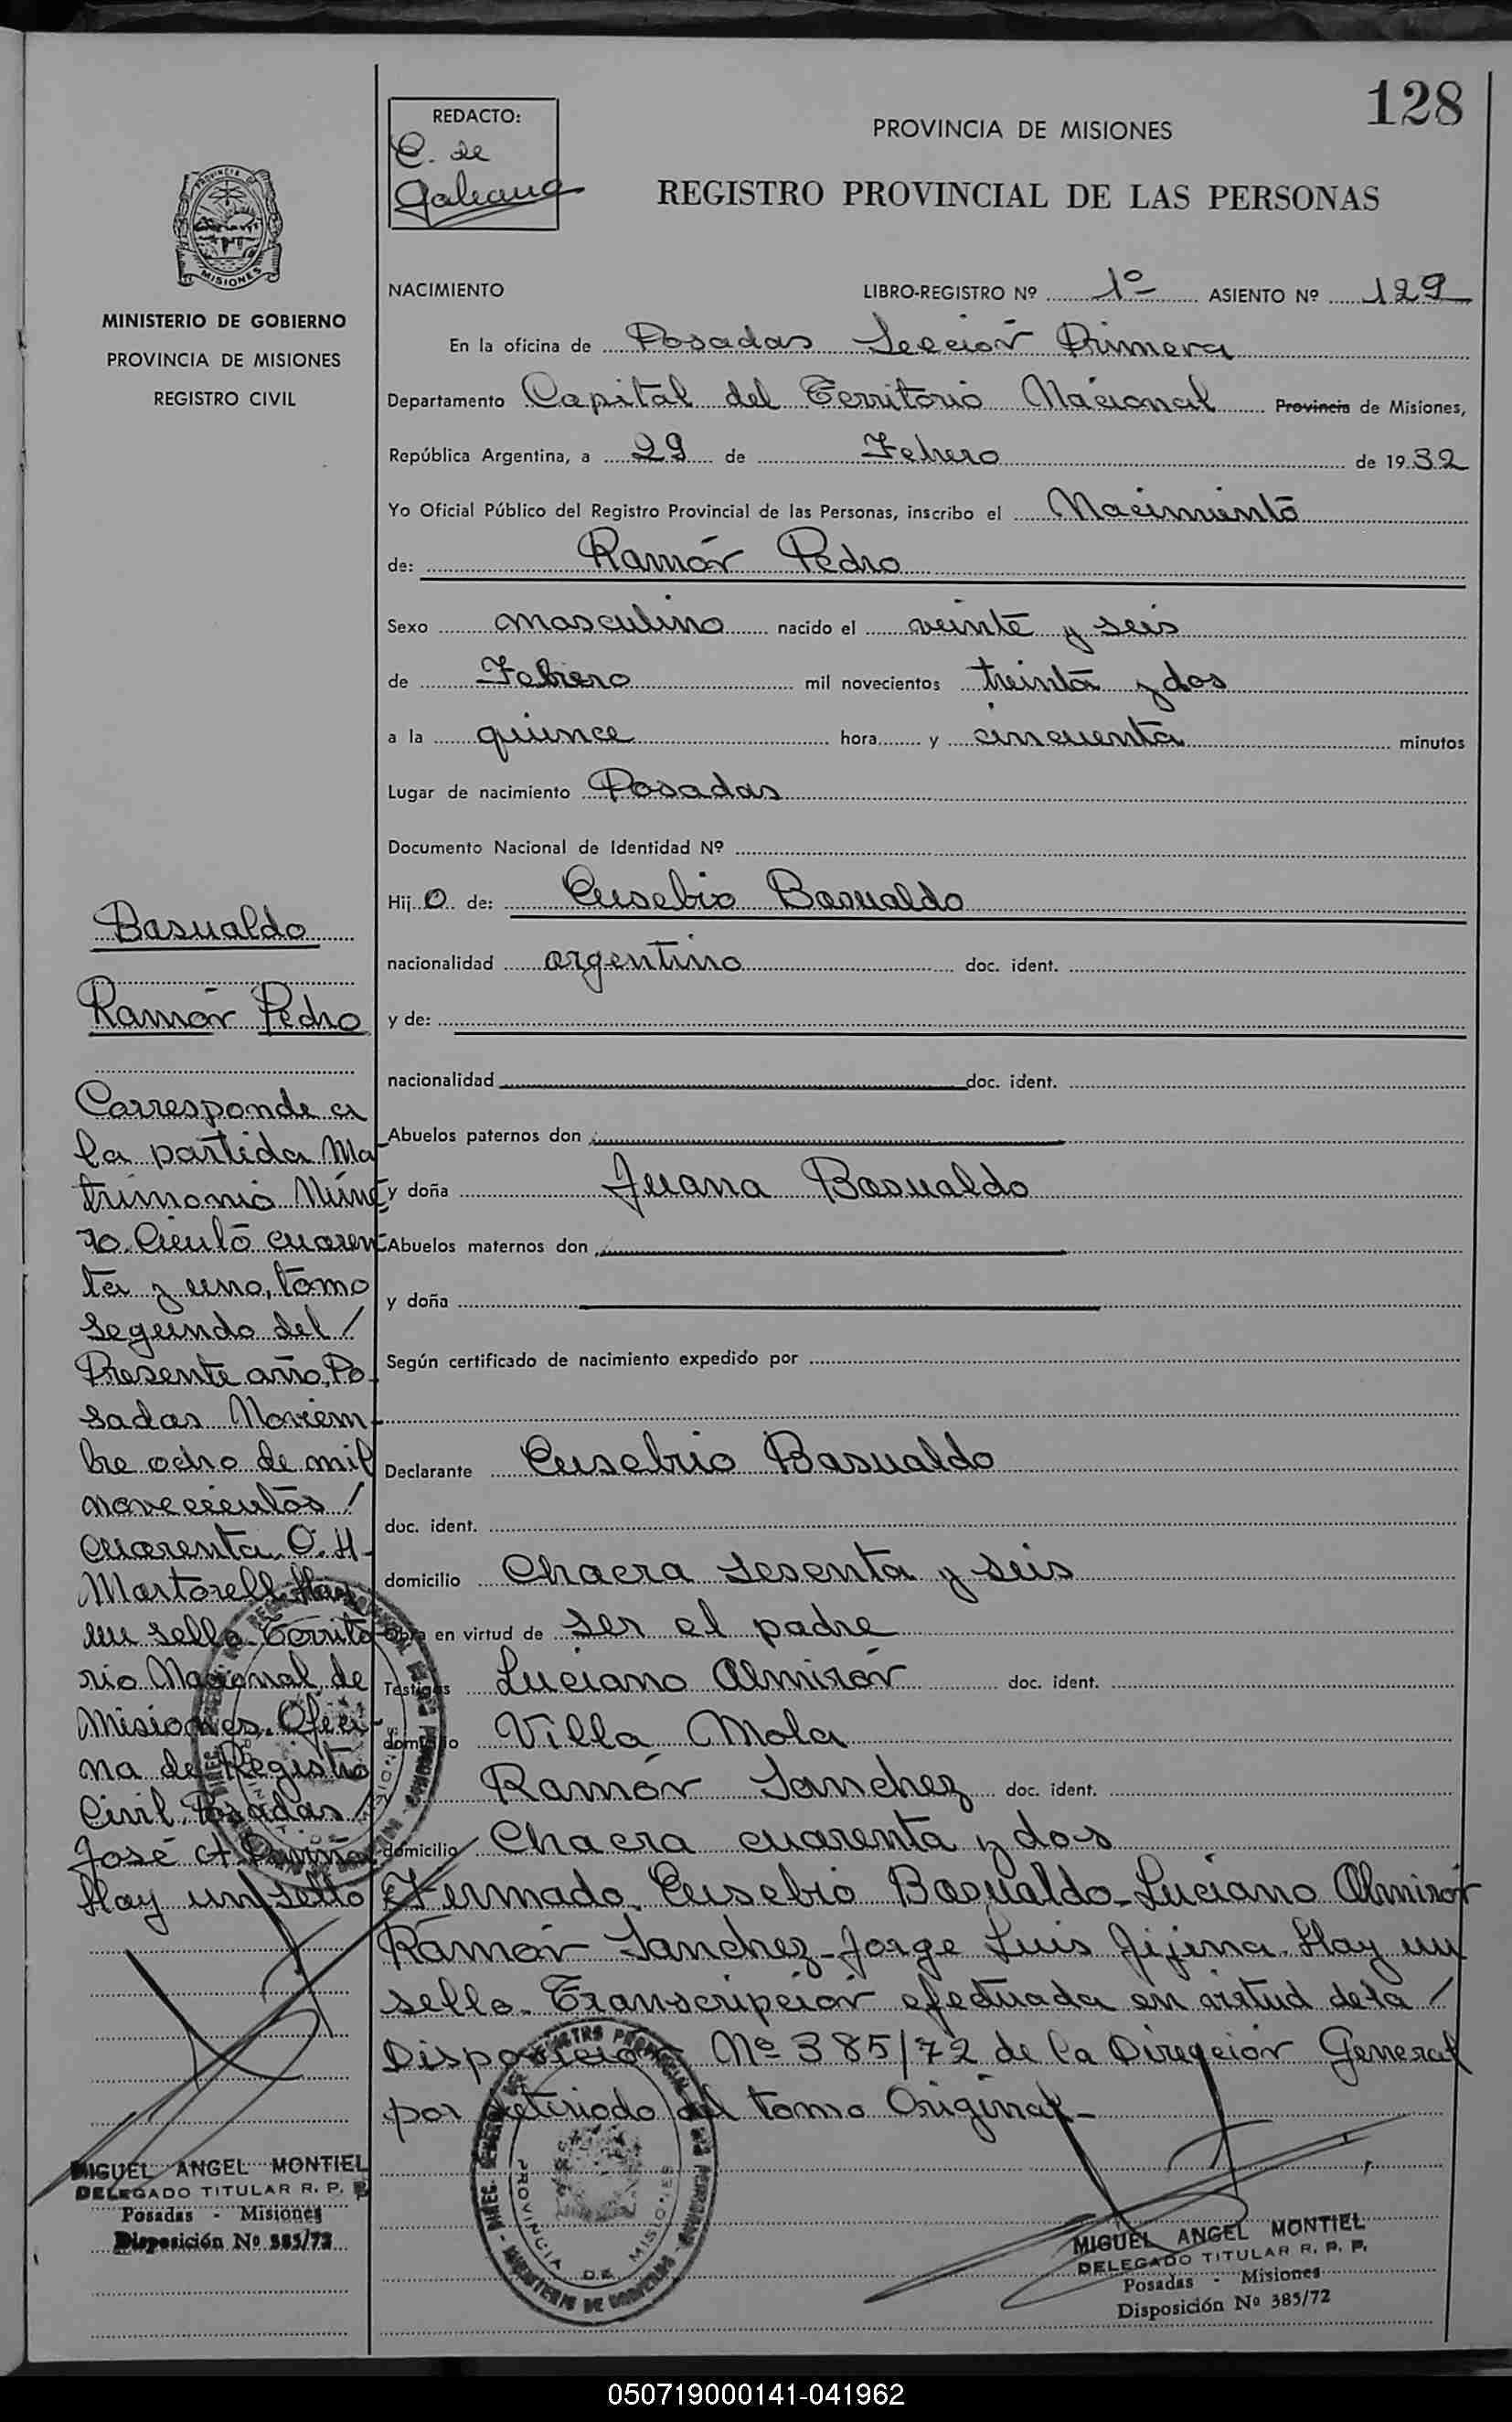 128
REDACTO:
C. de
Galeano
PROVINCIA DE MISIONES
REGISTRO PROVINCIAL DE LAS PERSONAS
MISIONES
MINISTERIO DE GOBIERNO
PROVINCIA DE MISIONES
REGISTRO CIVIL
NACIMIENTO LIBRO-REGISTRO Nº 1º ASIENTO Nº 129
En la oficina de Posadas Sección Primera
Departamento Capital del Territorio Nacional Provincia de Misiones,
República Argentina, a 29 de Febrero de 1932
Yo Oficial Público del Registro Provincial de las Personas, inscribo el Nacimiento
de: Ramón Pedro
Sexo masculino nacido el veinte y seis
de Febrero mil novecientos treinta y dos
a la quince hora y cincuenta minutos
Lugar de nacimiento Posadas
Documento Nacional de Identidad Nº
Hij o de: Eusebio Basualdo
nacionalidad argentino doc. ident.
y de:
nacionalidad doc. ident.
Abuelos paternos don
y doña Juana Basualdo
Abuelos maternos don
y doña
Según certificado de nacimiento expedido por
Declarante Eusebio Basualdo
doc. ident.
domicilio Chacra sesenta y seis
Obra en virtud de ser el padre
Testigos Luciano Almirón doc. ident.
domicilio Villa Mola
Ramón Sanchez doc. ident.
domicilio Chacra cuarenta y dos
Firmado. Eusebio Basualdo - Luciano Almirón
Ramón Sanchez - Jorge Luis Hay un
sello. Transcripción efectuada en virtud de la /
Disposición Nº 385/72 de la Dirección General
por del tomo Original -
Basualdo
Ramón Pedro
Corresponde a
la partida Ma
trimonio Núme
ro Ciento cuaren
ta y uno, tomo
Segundo del /
Presente año, Po
sadas Noviem
bre ocho de mil
novecientos /
cuarenta O. H.
Martorell Hay
un sello Territo
rio Nacional de
Misiones. Ofici
na de Registro
Civil Posadas /
José A
Hay un sello
MIGUEL ANGEL MONTIEL
DELEGADO TITULAR R. P. P.
Posadas - Misiones
Disposición Nº 385/72
PROVINCIA DE MISIONES
MIGUEL ANGEL MONTIEL
DELEGADO TITULAR R. P. P.
Posadas - Misiones
Disposición Nº 385/72
050719000141-041962